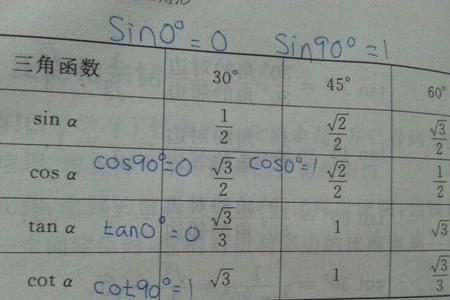 Sin0°=0 Sin90°=1
三角函数 30° 45° 60°
sin α 1/2 √2/2 √3/2
cos α cos90°=0 √3/2 cos0°=1 √2/2 1/2
tan α tan0°=0 √3/3 1 √3
cot α cot90°=1 √3 1 √3/3